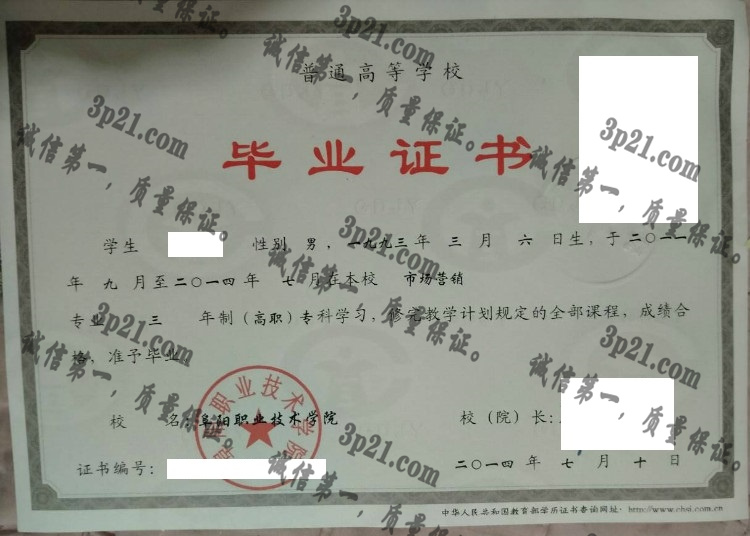 普通高等学校
毕业证书
学生 性别 男，一九九三年 三 月 六 日生，于二〇一一
年 九 月至二〇一四年 七 月在本校 市场营销
专业 三 年制（高职）专科学习，修完教学计划规定的全部课程，成绩合
格，准予毕业
校 名：阜阳职业技术学院
校（院）长：
证书编号：
二〇一四 年 七 月 十 日
中华人民共和国教育部学历证书查询网址：http://www.chsi.com.cn
职业技术学院
3p21.com
诚信第一，质量保证。
3p21.com
诚信第一，质量保证。
3p21.com
诚信第一，质量保证。
3p21.com
诚信第一，质量保证。
3p21.com
诚信第一，质量保证。
3p21.com
诚信第一，质量保证。
3p21.com
诚信第一，质量保证。
3p21.com
诚信第一，质量保证。